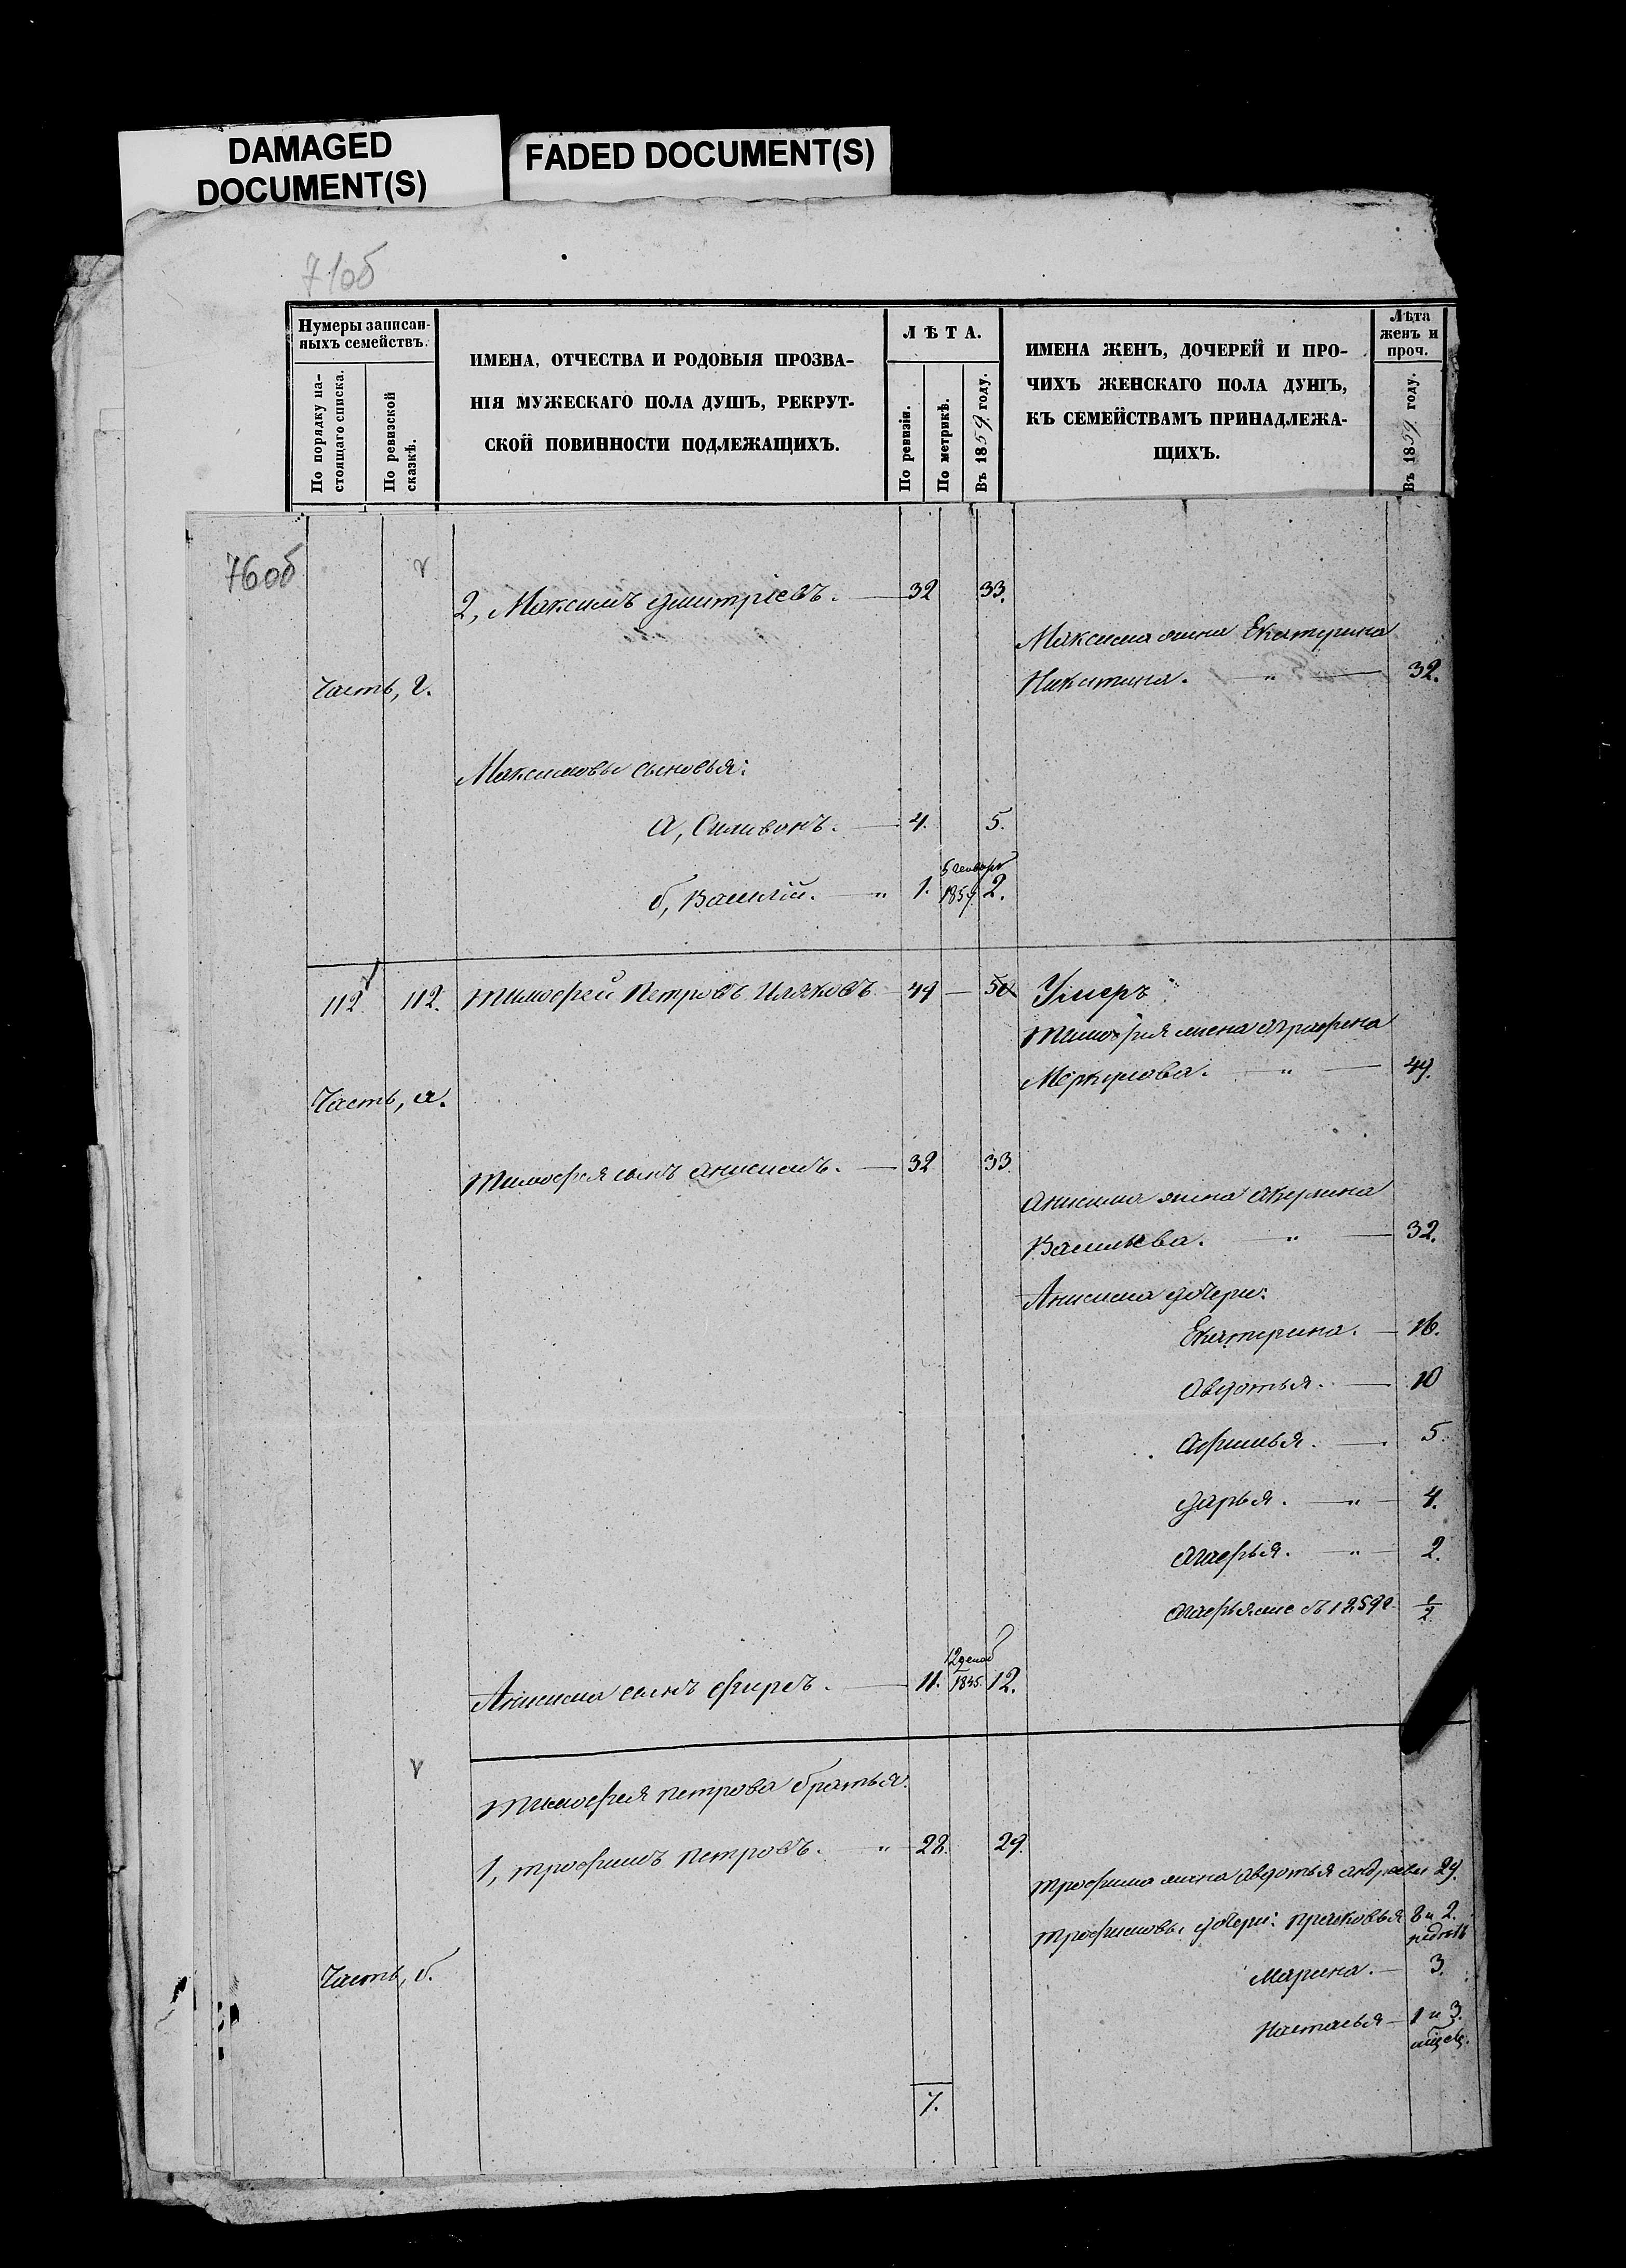 DAMAGED
DOCUMENT(S)
FADED DOCUMENT(S)
71об
Нумеры записан-
ныхъ семействъ.
По порядку на-
стоящаго списка.
По ревизской
сказкѣ.
ИМЕНА, ОТЧЕСТВА И РОДОВЫЯ ПРОЗВА-
НІЯ МУЖЕСКАГО ПОЛА ДУШЪ, РЕКРУТ-
СКОЙ ПОВИННОСТИ ПОДЛЕЖАЩИХЪ.
ЛѢТА.
По ревизіи.
По метрикѣ.
Въ 1859 году.
ИМЕНА ЖЕНЪ, ДОЧЕРЕЙ И ПРО-
ЧИХЪ ЖЕНСКАГО ПОЛА ДУШЪ,
КЪ СЕМЕЙСТВАМЪ ПРИНАДЛЕЖА-
ЩИХЪ.
Лѣта
женъ и
проч.
Въ 1859 году.
76об
2, Максимъ Дмитріевъ. 32 33.
Максима жена Екатерина
Никитина. " 32.
Часть, г.
Максимовы сыновья:
а, Силивонъ. 4. 5.
б, Василій. " 1. 1859 2.
112 112. Тимофей Петровъ Иляковъ 49 — 50 Умеръ
Тимофея жена Аграфена
Меркулова. " 49.
Часть, а.
Тимофея сынъ Анисимъ. 32 33.
Анисима жена Акулина
Васильева. " 32.
Анисима дочери:
Екатерина. — 16.
Авдотья. — 10
Афимья. — 5.
Дарья. " 4.
Марья. " 2.
1/2
12 декаб
Анисима сынъ 11. 1845. 12.
Тимофея Петрова братья.
1, Трофимъ Петровъ. " 28. 29.
Трофима жена Авдотья Андреева 29.
Трофимовы дочери: Прасковья 8 и 2.
недѣль
Часть, б.
Марина. — 3.
Настасья — 1 и 3.
мѣсяц.
7.